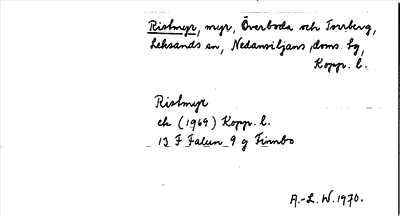 Ristmyr, myr, Överboda och Torrberg,
Leksands sn, Nedansiljans doms. fg,
Kopp. l.
Ristmyr
ek (1969) Kopp. l.
13 F Falun 9 g Finnbo
A.-L. W. 1970.